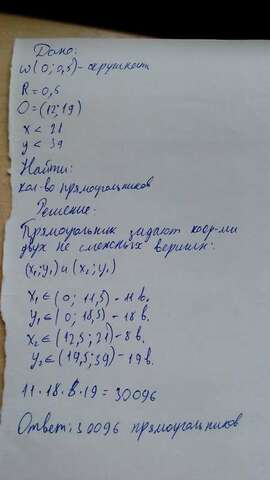 Дано:
ω(0; 0,5) - окружность
R = 0,5
O = (12; 19)
x < 21
y < 39
Найти:
кол-во прямоугольников
Решение.
Прямоугольник задают коор-ми
двух не смежных вершин:
(x₁; y₁) и (x₂; y₂)
x₁ ∈ (0; 11,5) - 11 в.
y₁ ∈ (0; 18,5) - 18 в.
x₂ ∈ (12,5; 21) - 8 в.
y₂ ∈ (19,5; 39) - 19 в.
11 · 18 · 8 · 19 = 30096
Ответ: 30096 прямоугольников